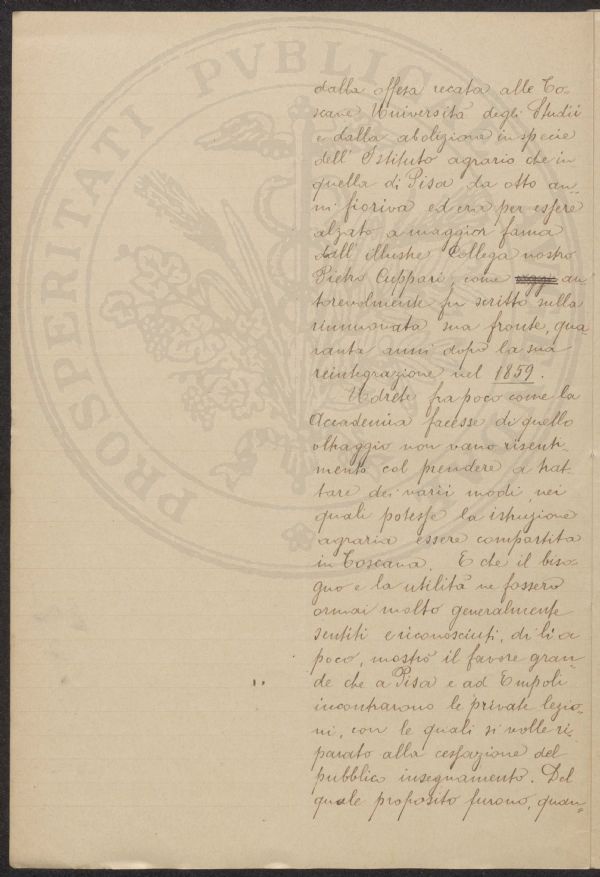 PROSPERITATI PVBLIC
dalla offesa recata alle To-
scane Università degli Studii
e dalla abolizione in specie
dell' Istituto agrario che in
quella di Pisa da otto an-
ni fioriva ed era per essere
alzato a maggior fama
dall' illustre Collega nostro
Pietro Cuppari, come au
torevolmente fu scritto sulla
rinnovata sua fronte, qua
ranta anni dopo la sua
reintegrazione nel 1859.
Udrete fra poco come la
Accademia facesse di quello
oltraggio non vano risenti-
mento col prendere a trat
tare dei varii modi nei
quali potesse la istruzione
agraria essere compartita
in Toscana. E che il biso-
gno e la utilità ne fossero
ormai molto generalmente
sentiti e riconosciuti, di lì a
poco, mostrò il favore gran-
de che a Pisa e ad Empoli
incontrarono le private lezio-
ni, con le quali si volle ri-
parato alla cessazione del
pubblico insegnamento. Del
quale proposito furono, quan=